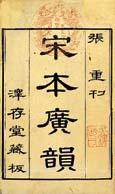 張 重刊
宋本廣韻
澤存堂藏板